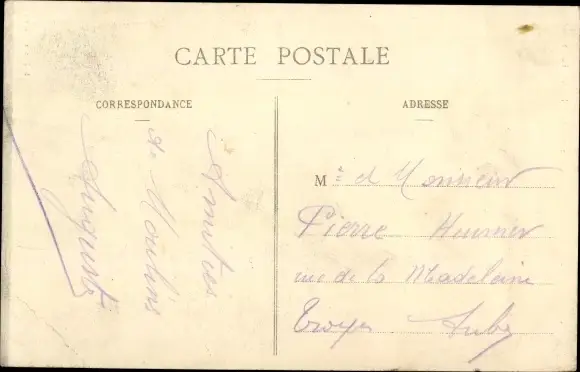 CARTE POSTALE
CORRESPONDANCE
ADRESSE
Amitiés
de Moulins
Auguste
M.e et Monsieur
Pierre
rue de la Madeleine
Troyes Aube